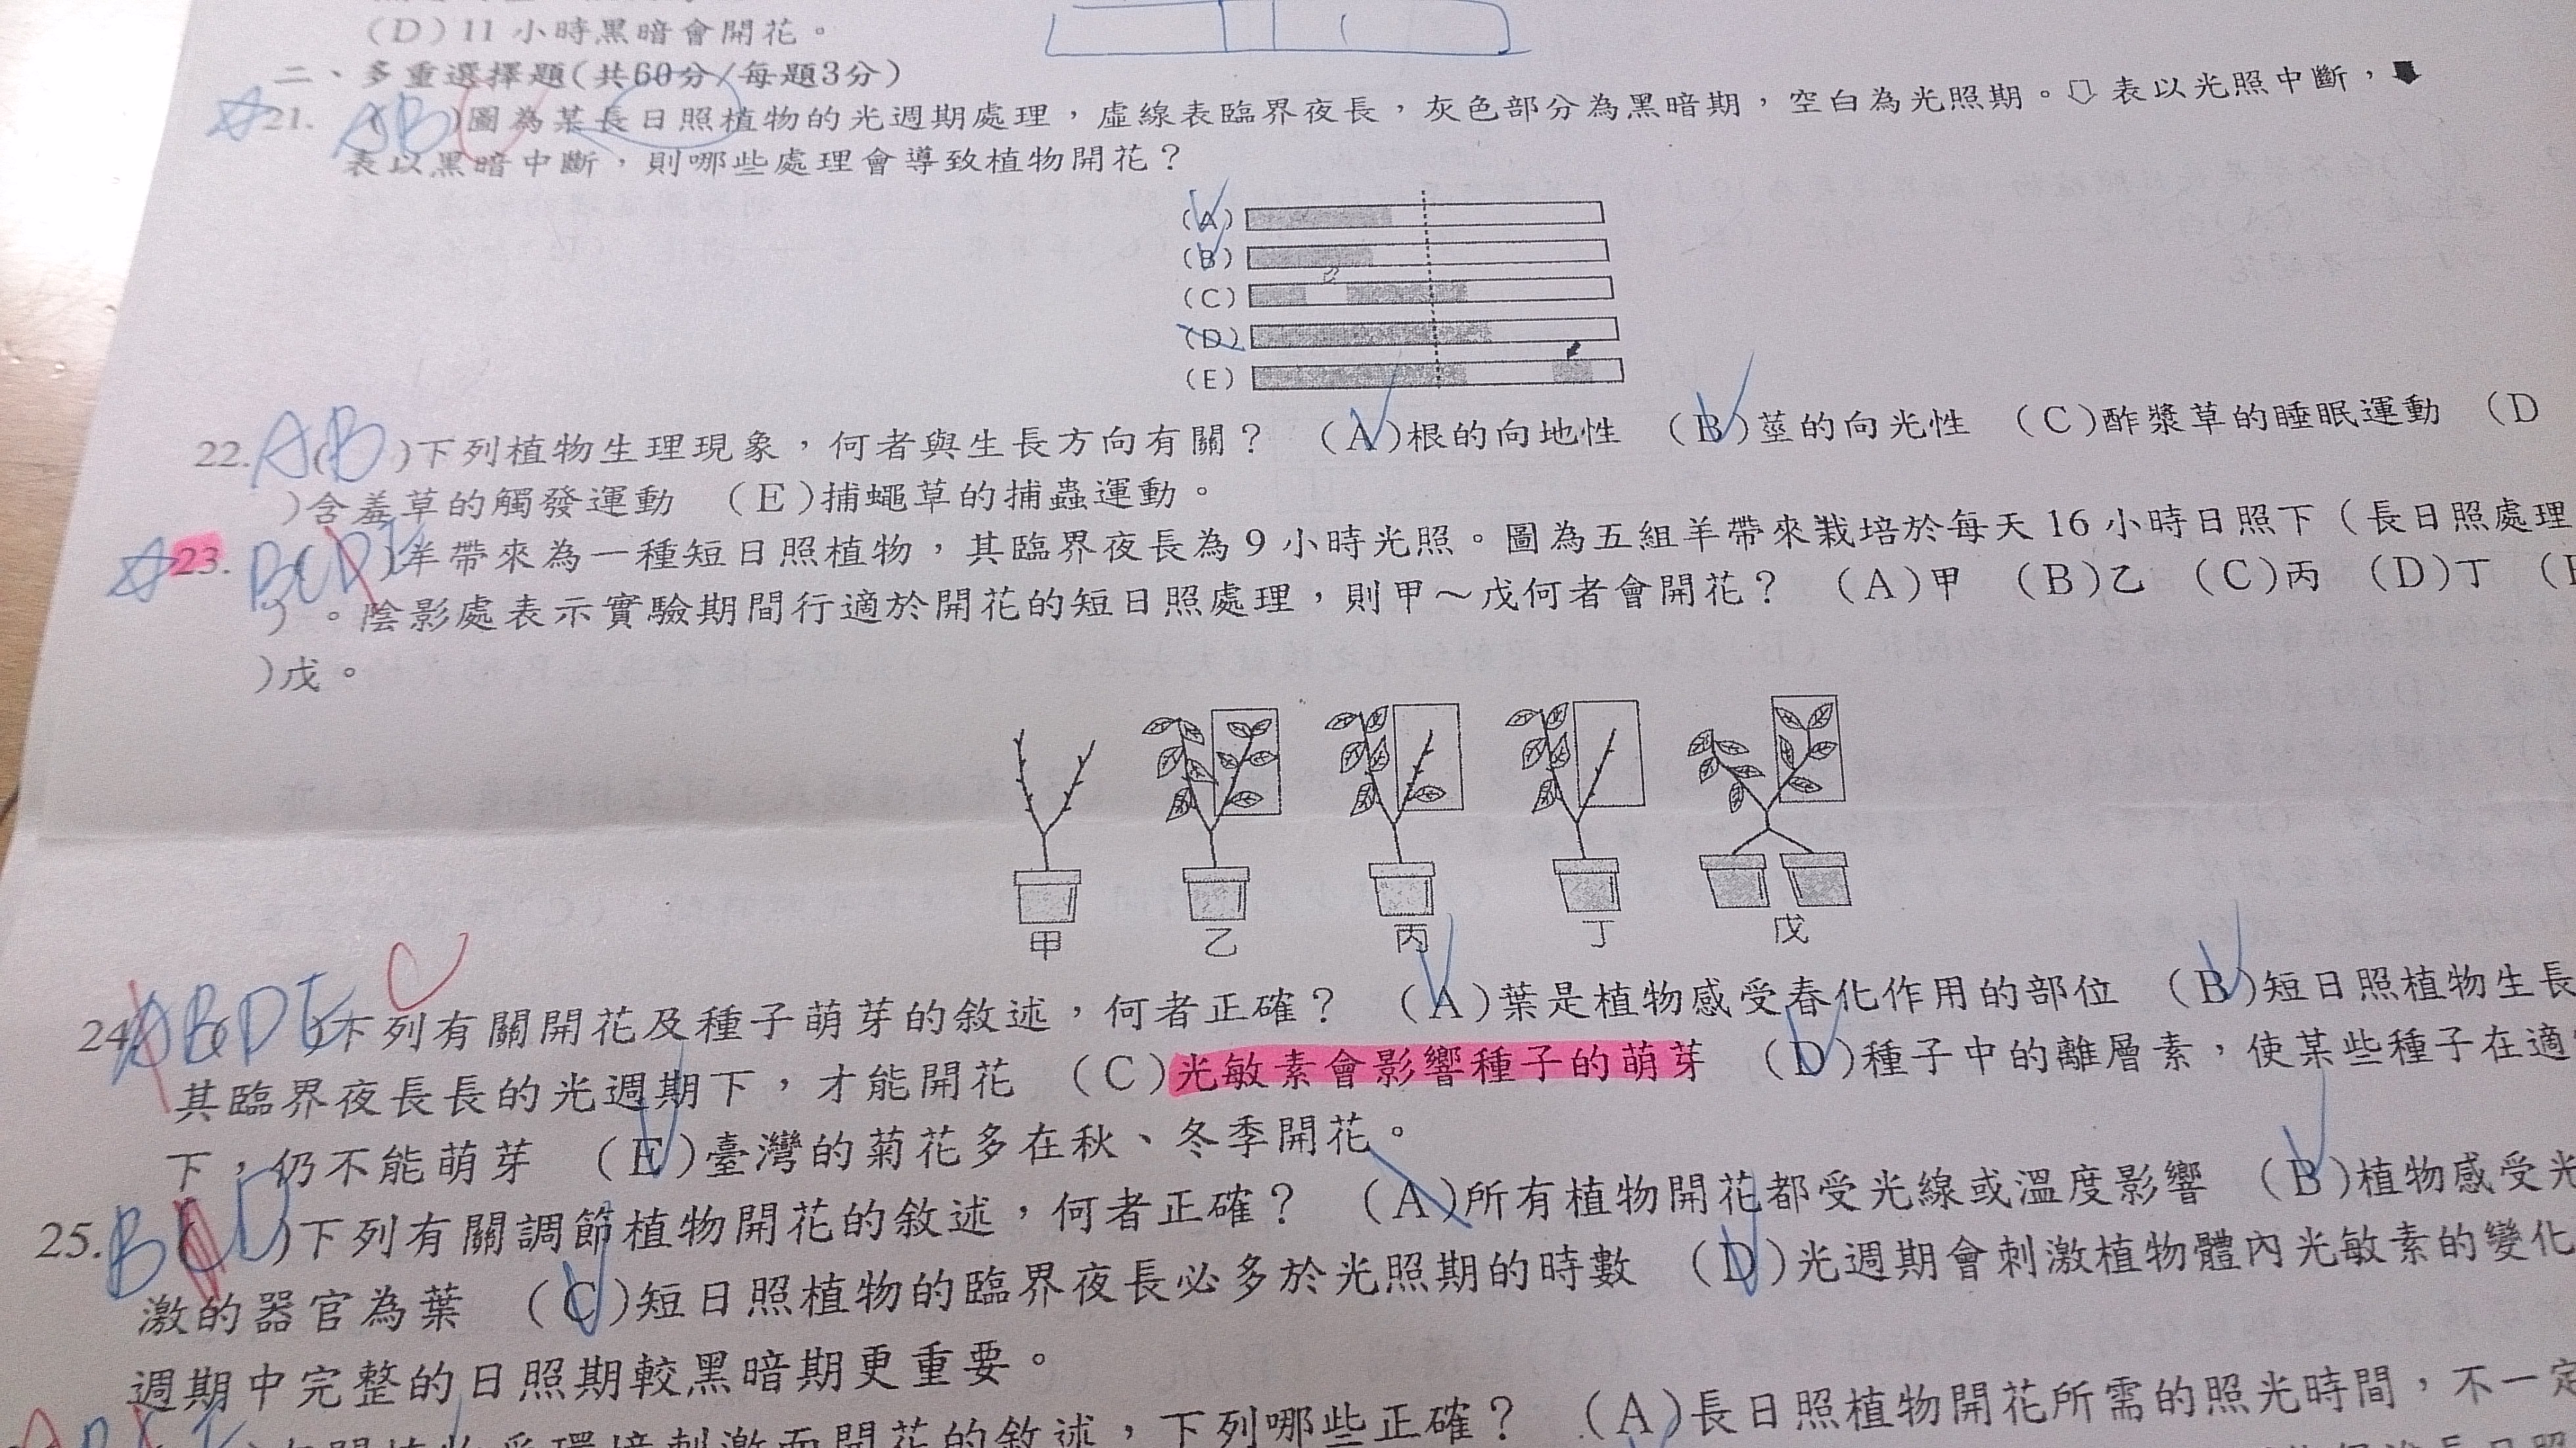 (D)11 小時黑暗會開花。
二、多重選擇題(共60分/每題3分)
21. ABC ( )圖為某長日照植物的光週期處理，虛線表臨界夜長，灰色部分為黑暗期，空白為光照期。⇩表以光照中斷，⬇
表以黑暗中斷，則哪些處理會導致植物開花？
(A)
(B)
(C)
(D)
(E)
22. AB ( )下列植物生理現象，何者與生長方向有關？ (A)根的向地性 (B)莖的向光性 (C)酢漿草的睡眠運動 (D
)含羞草的觸發運動 (E)捕蠅草的捕蟲運動。
23. BCDE ( )羊帶來為一種短日照植物，其臨界夜長為 9 小時光照。圖為五組羊帶來栽培於每天 16 小時日照下（長日照處理
）。陰影處表示實驗期間行適於開花的短日照處理，則甲～戊何者會開花？ (A)甲 (B)乙 (C)丙 (D)丁 (E
)戊。
甲 乙 丙 丁 戊
24. ABDE C ( )下列有關開花及種子萌芽的敘述，何者正確？ (A)葉是植物感受春化作用的部位 (B)短日照植物生長
其臨界夜長長的光週期下，才能開花 (C)光敏素會影響種子的萌芽 (D)種子中的離層素，使某些種子在適
下，仍不能萌芽 (E)臺灣的菊花多在秋、冬季開花。
25. BCD ( )下列有關調節植物開花的敘述，何者正確？ (A)所有植物開花都受光線或溫度影響 (B)植物感受光
激的器官為葉 (C)短日照植物的臨界夜長必多於光照期的時數 (D)光週期會刺激植物體內光敏素的變化
週期中完整的日照期較黑暗期更重要。
受環境刺激而開花的敘述，下列哪些正確？ (A)長日照植物開花所需的照光時間，不一定